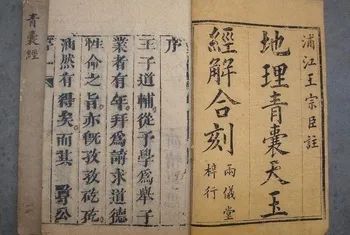 浦江王宗臣註
地理青囊天玉
經解合刻
兩儀堂
梓行
序
王子道輔從予學爲舉子
業者有年拜爲請求道德
性命之旨亦旣孜孜矻矻
涵然有得矣而其
青囊經